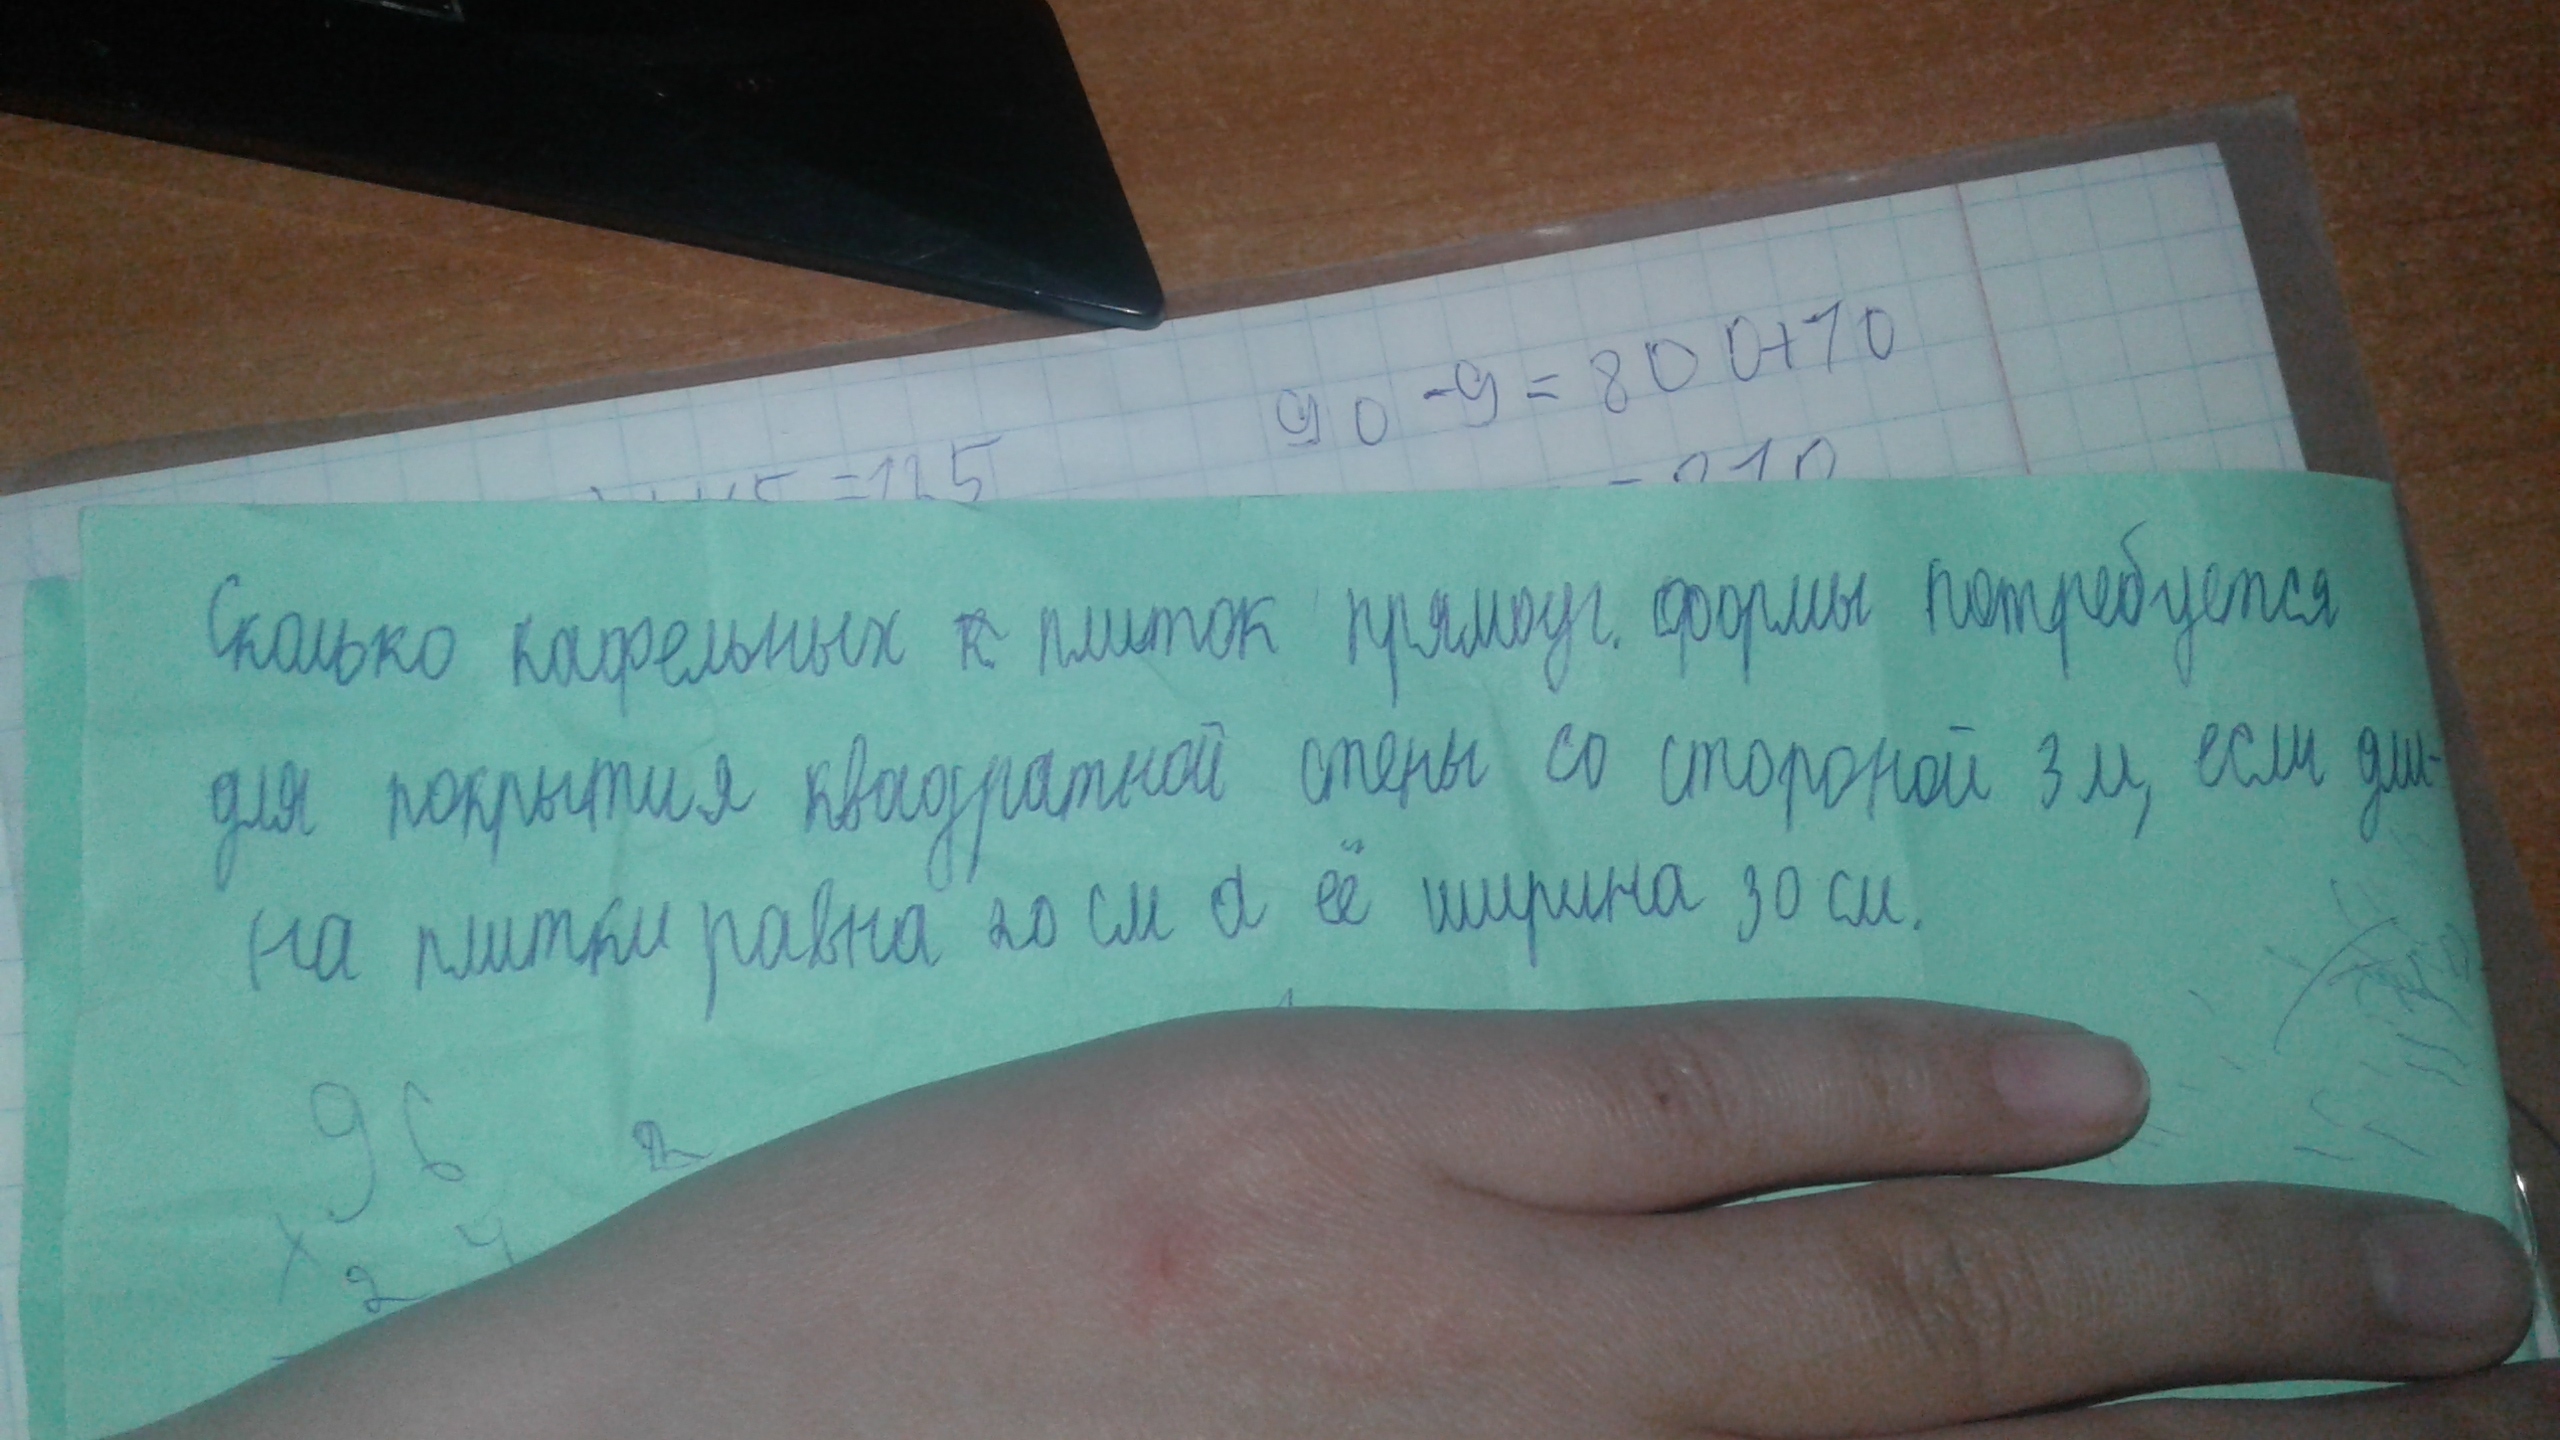 90-9=800+10
=125
=810
Сколько кафельных к плиток прямоуг. формы потребуется
для покрытия квадратной стены со стороной 3 м, если дли-
на плитки равна 20 см а её ширина 30 см.
96 2
х 24